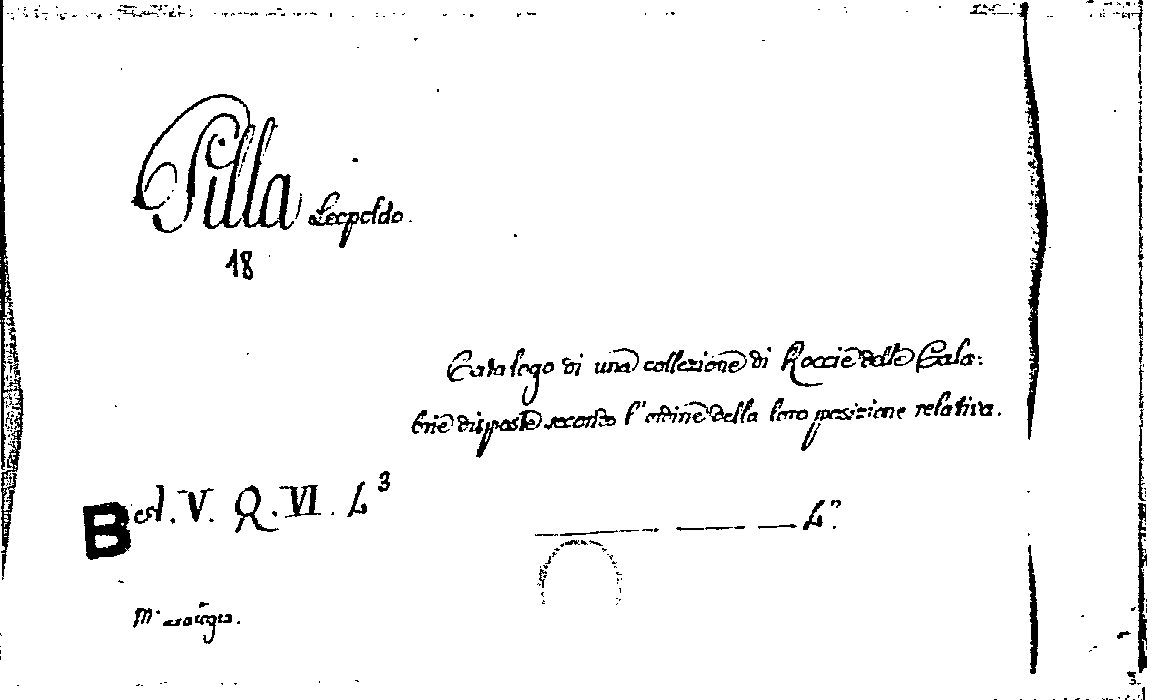 Pilla Leopoldo.
18
Catalogo di una collezione di Roccie delle Cala:
brie disposte secondo l'ordine della loro posizione relativa.
B cel. V. Q. VI. L³
4°.